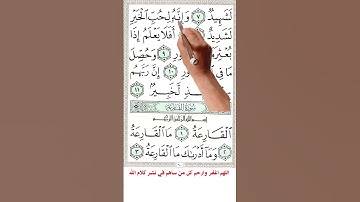 لَشَهِيدٌ ٧ وَإِنَّهُۥ لِحُبِّ ٱلْخَيْرِ
لَشَدِيدٌ ٨ أَفَلَا يَعْلَمُ إِذَا
بُعْثِرَ ٩ وَحُصِّلَ
مَا فِي ١٠ إِنَّ رَبَّهُم
لَّخَبِيرٌ ١١
سُورَةُ القَارِعَةِ
بِسْمِ اللَّهِ الرَّحْمَٰنِ الرَّحِيمِ
ٱلْقَارِعَةُ ١ مَا ٱلْقَارِعَةُ
٢ وَمَآ أَدْرَىٰكَ مَا ٱلْقَارِعَةُ ٣
اللهم اغفر وارحم كل من ساهم في نشر كلام الله